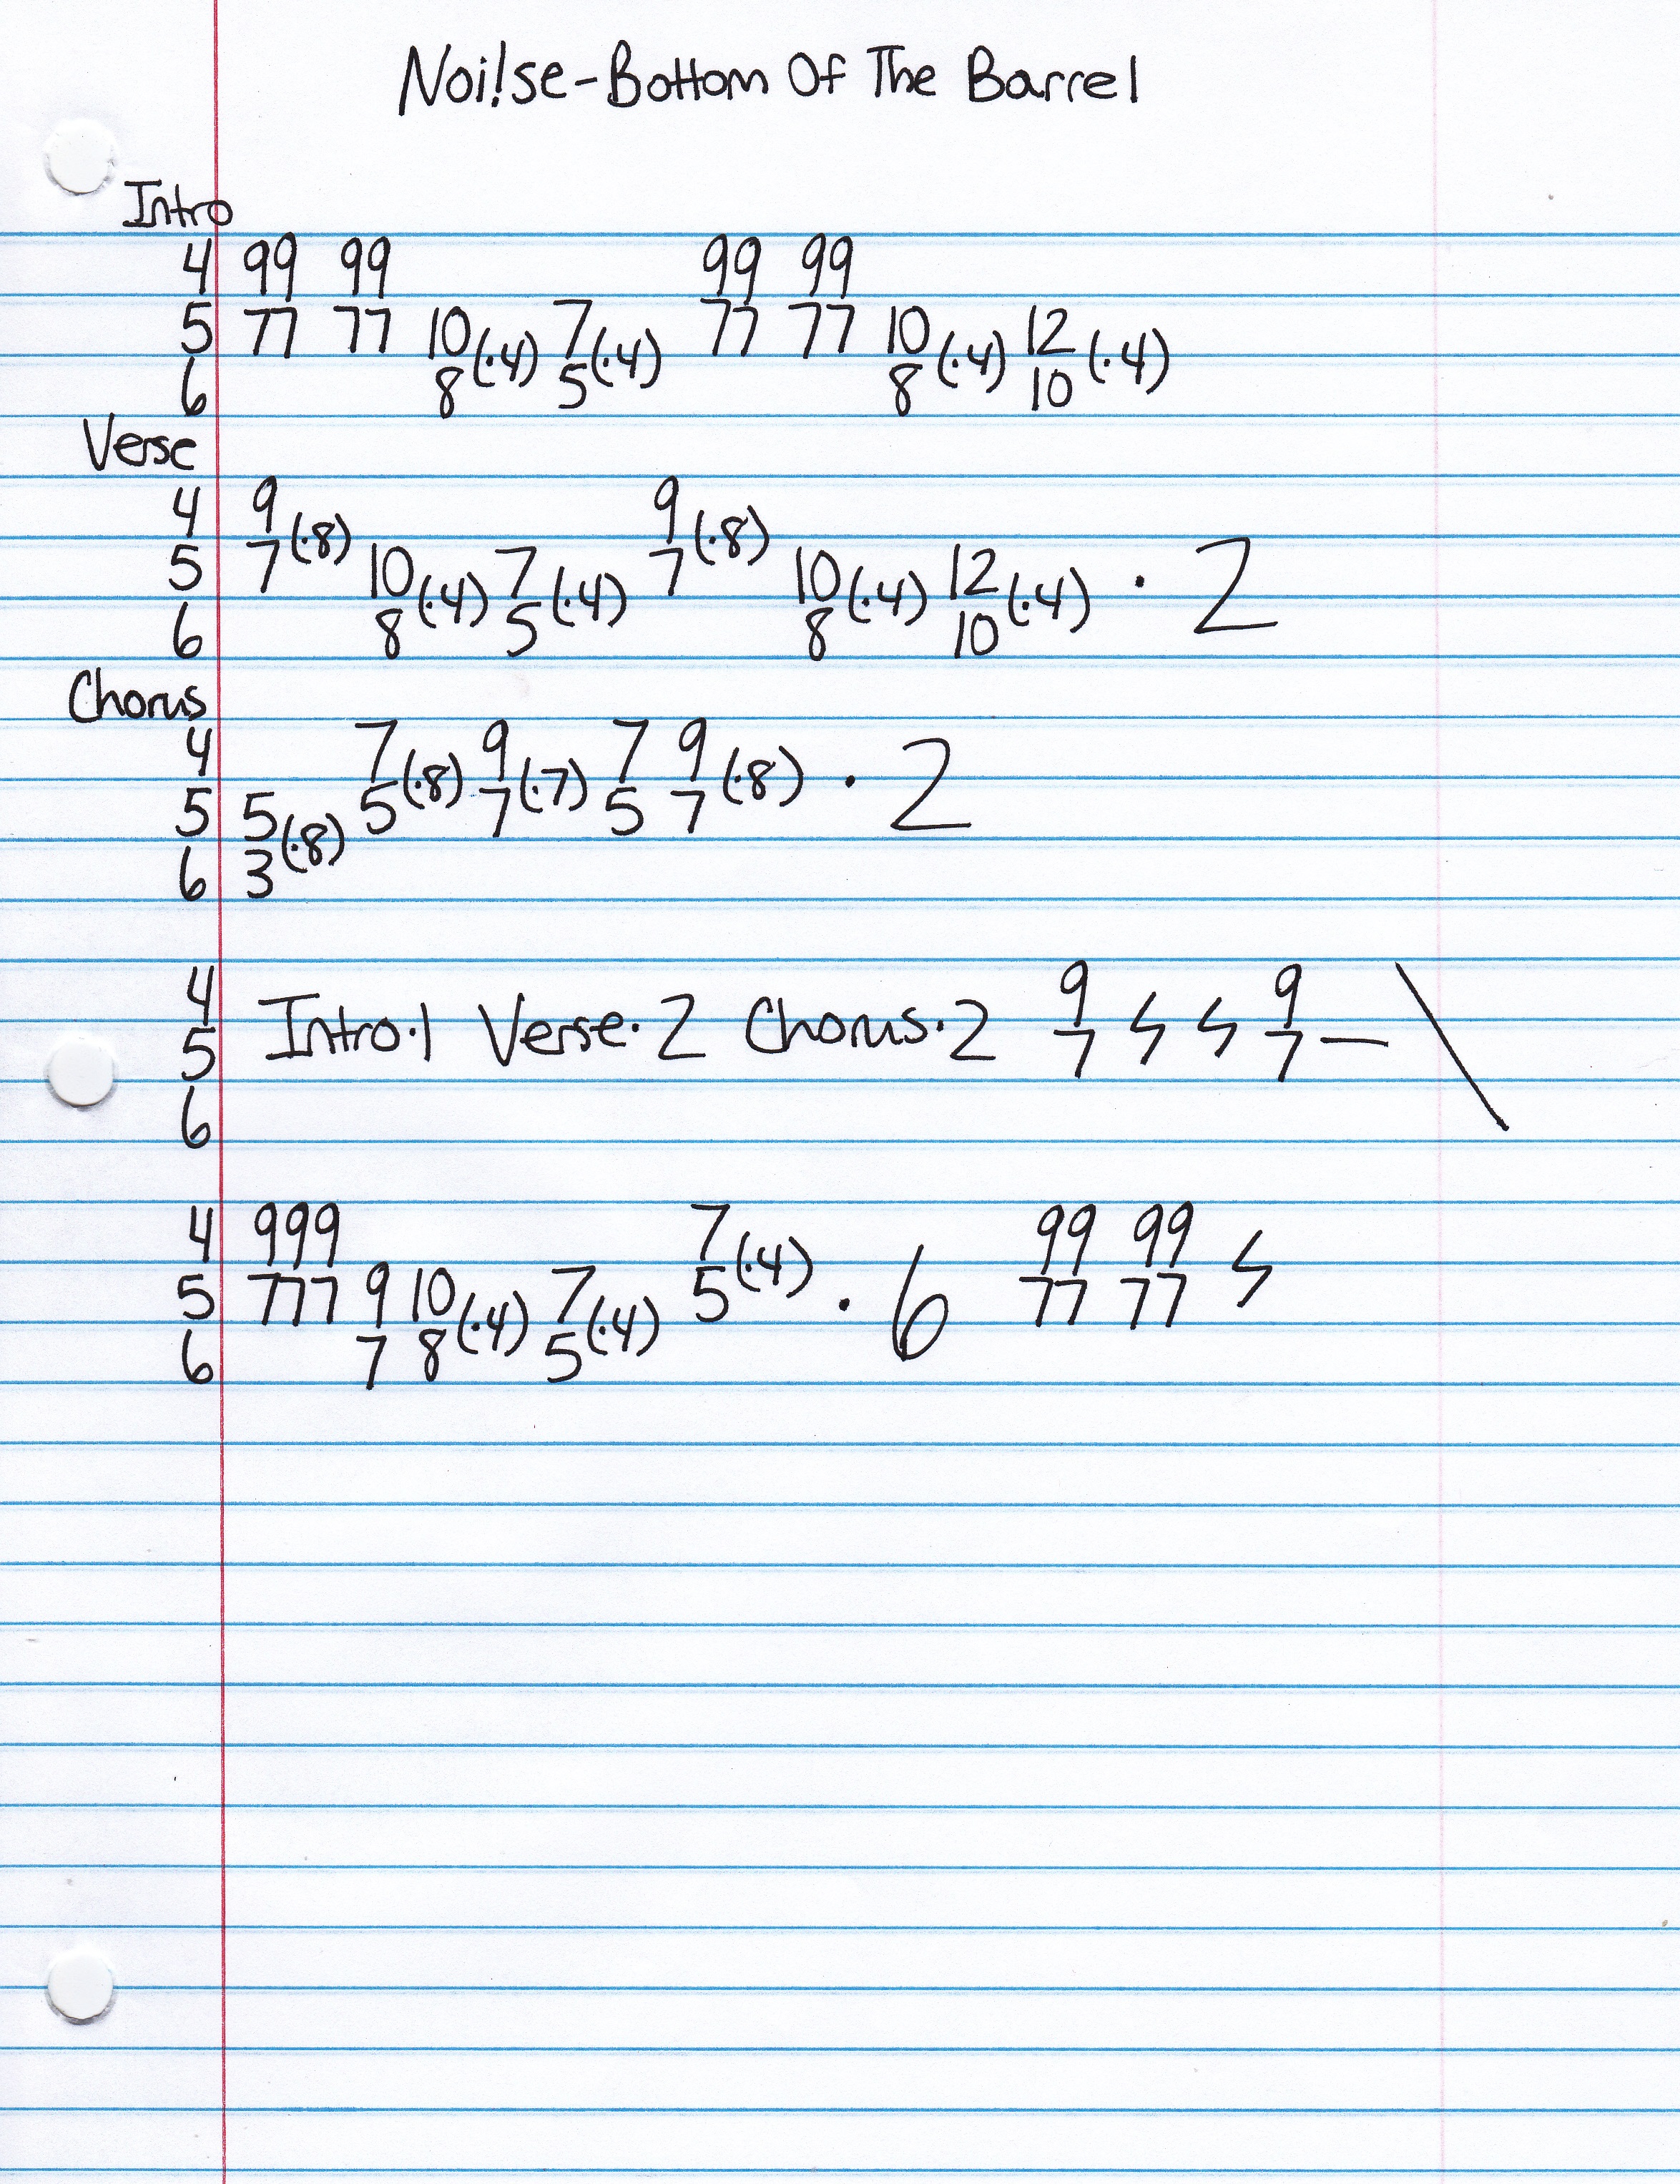 Noi!se-Bottom Of The Barrel
Intro
4 99 99 99 99
5 77 77 10(·4) 7(·4) 77 77 10(·4) 12(·4)
6 8 5 8 10
Verse
4 9(·8) 9(·8)
5 7 10(·4) 7(·4) 7 10(·4) 12(·4) · 2
6 8 5 8 10
Chorus
4 7(·8) 9(·7) 7 9(·8) · 2
5 5(·8) 5 7 5 7
6 3
4 9 9
5 Intro·1 Verse·2 Chorus·2 7 7 —
6
4 999 7(·4) 99 99
5 777 9 10(·4) 7(·4) 5 · 6 77 77
6 7 8 5